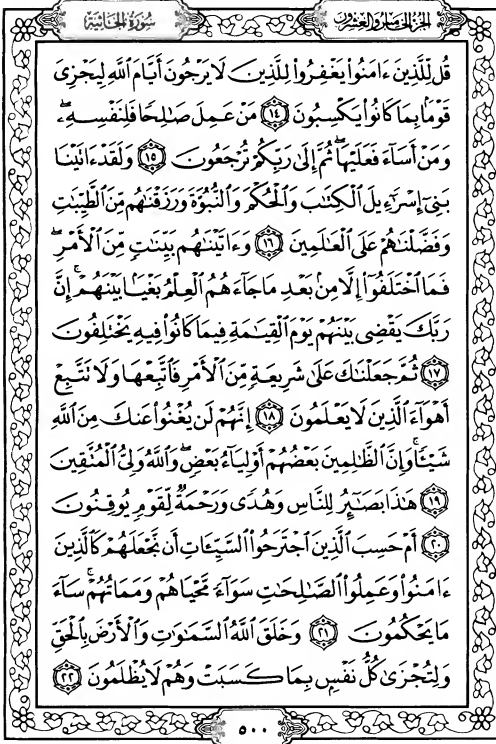 سُورَةُ الْجَاثِيَةِ
الجُزءُ الخَامِسُ وَالعِشْرُونَ
قُل لِّلَّذِينَ ءَامَنُوا۟ يَغْفِرُوا۟ لِلَّذِينَ لَا يَرْجُونَ أَيَّامَ ٱللَّهِ لِيَجْزِىَ
قَوْمًۢا بِمَا كَانُوا۟ يَكْسِبُونَ ١٤ مَنْ عَمِلَ صَٰلِحًا فَلِنَفْسِهِۦ ۖ
وَمَنْ أَسَآءَ فَعَلَيْهَا ۖ ثُمَّ إِلَىٰ رَبِّكُمْ تُرْجَعُونَ ١٥ وَلَقَدْ ءَاتَيْنَا
بَنِىٓ إِسْرَٰٓءِيلَ ٱلْكِتَٰبَ وَٱلْحُكْمَ وَٱلنُّبُوَّةَ وَرَزَقْنَٰهُم مِّنَ ٱلطَّيِّبَٰتِ
وَفَضَّلْنَٰهُمْ عَلَى ٱلْعَٰلَمِينَ ١٦ وَءَاتَيْنَٰهُم بَيِّنَٰتٍ مِّنَ ٱلْأَمْرِ ۖ
فَمَا ٱخْتَلَفُوٓا۟ إِلَّا مِنۢ بَعْدِ مَا جَآءَهُمُ ٱلْعِلْمُ بَغْيًۢا بَيْنَهُمْ ۚ إِنَّ
رَبَّكَ يَقْضِى بَيْنَهُمْ يَوْمَ ٱلْقِيَٰمَةِ فِيمَا كَانُوا۟ فِيهِ يَخْتَلِفُونَ
١٧ ثُمَّ جَعَلْنَٰكَ عَلَىٰ شَرِيعَةٍ مِّنَ ٱلْأَمْرِ فَٱتَّبِعْهَا وَلَا تَتَّبِعْ
أَهْوَآءَ ٱلَّذِينَ لَا يَعْلَمُونَ ١٨ إِنَّهُمْ لَن يُغْنُوا۟ عَنكَ مِنَ ٱللَّهِ
شَيْـًٔا ۚ وَإِنَّ ٱلظَّٰلِمِينَ بَعْضُهُمْ أَوْلِيَآءُ بَعْضٍ ۖ وَٱللَّهُ وَلِىُّ ٱلْمُتَّقِينَ
١٩ هَٰذَا بَصَٰٓئِرُ لِلنَّاسِ وَهُدًى وَرَحْمَةٌ لِّقَوْمٍ يُوقِنُونَ
٢٠ أَمْ حَسِبَ ٱلَّذِينَ ٱجْتَرَحُوا۟ ٱلسَّيِّـَٔاتِ أَن نَّجْعَلَهُمْ كَٱلَّذِينَ
ءَامَنُوا۟ وَعَمِلُوا۟ ٱلصَّٰلِحَٰتِ سَوَآءً مَّحْيَاهُمْ وَمَمَاتُهُمْ ۚ سَآءَ
مَا يَحْكُمُونَ ٢١ وَخَلَقَ ٱللَّهُ ٱلسَّمَٰوَٰتِ وَٱلْأَرْضَ بِٱلْحَقِّ
وَلِتُجْزَىٰ كُلُّ نَفْسٍۭ بِمَا كَسَبَتْ وَهُمْ لَا يُظْلَمُونَ ٢٢
٥٠٠